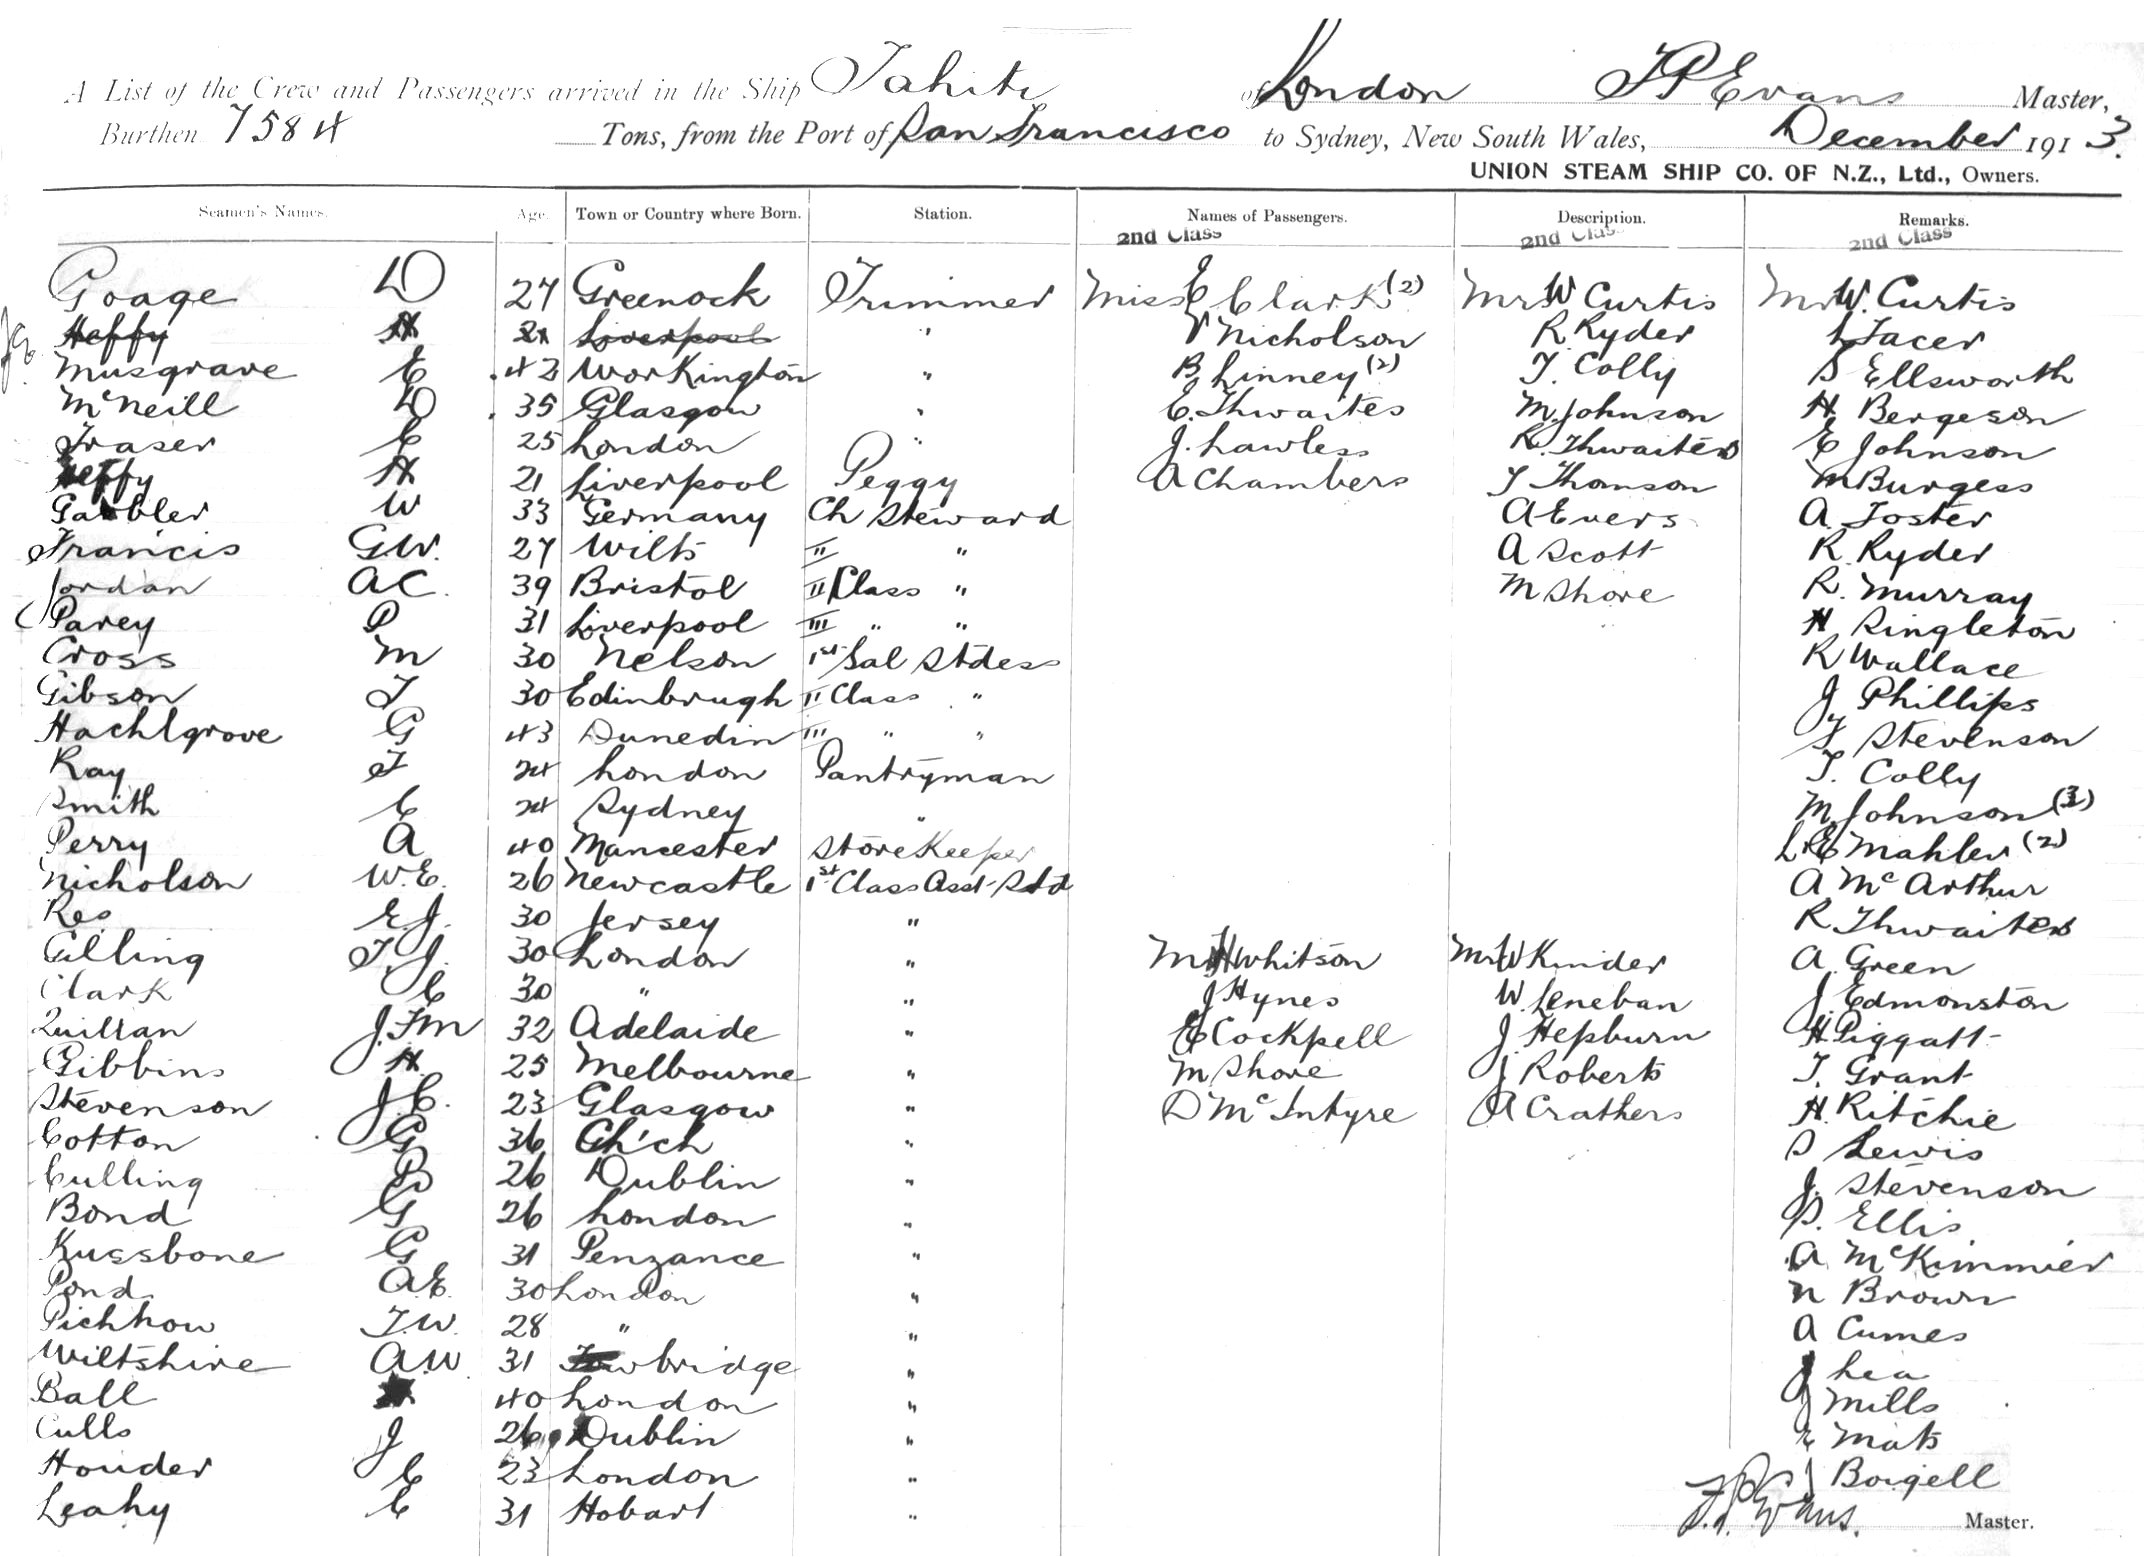 A List of the Crew and Passengers arrived in the Ship Tahiti of London J P Evans Master,
Burthen 7584 Tons, from the Port of San Francisco to Sydney, New South Wales, December 1913.
UNION STEAM SHIP CO. OF N.Z., Ltd., Owners.
Seamen's Names. Age. Town or Country where Born. Station. Names of Passengers. Description. Remarks.
2nd Class 2nd Class 2nd Class
Goage D 27 Greenock Trimmer Miss E Clark (2) Mr W Curtis Mr W. Curtis
Heffy H 21 Liverpool " Nicholson R Ryder Tacer
Musgrave E 42 Workington " B Linney (2) T. Colly S Ellsworth
McNeill D 35 Glasgow " E. Thwaites M Johnson H. Bergeson
Fraser C 25 London " J. Lawless R. Thwaites E Johnson
Heffy H 21 Liverpool Peggy A Chambers T Thomson M Burgess
Gabbler W 33 Germany Ch Steward A Evers A. Foster
Francis G W. 27 Wilts II " A Scott R. Ryder
Jordan A C. 39 Bristol II Class " M Shore R. Murray
Parey P 31 Liverpool III " " H Singleton
Cross M 30 Nelson 1st Sal Stdess R Wallace
Gibson T 30 Edinbrugh II Class " J Phillips
Hachlgrove G 43 Dunedin III " " T Stevenson
Ray T 24 London Pantryman T. Colly
Smith C 24 Sydney " M. Johnson (3)
Perry A 40 Mancester Storekeeper L E Mahler (2)
Nicholson W. E. 26 Newcastle 1st Class Asst Std A McArthur
Reo E. J. 30 Jersey " R Thwaites
Gilling T. J. 30 London " Mr H Whitson Mr W Kinder A. Green
Clark C 30 " " J Hynes W. Leneban J. Edmonston
Quillan J. F M 32 Adelaide " E Cockpell J. Hepburn H. Piggatt
Gibbins H. 25 Melbourne " M. Shore J Roberts T. Grant
Stevenson J. C. 23 Glasgow " D McIntyre A Crathers H. Ritchie
Cotton G 36 Ch'ch " S Lewis
Culling B 26 Dublin " J. Stevenson
Bond G 26 London " S. Ellis
Kussbone G 31 Penzance " A McKimmier
Pond A. E. 30 London " N Brown
Pichhow T. W. 28 " " A Cumes
Wiltshire A. W. 31 bridge " J Lea
Ball 40 London " J Mills
Culls J 26 Dublin " E Mats
Houder C 23 London " J Borgell
Leahy C 31 Hobart " J. P. Evans. Master.